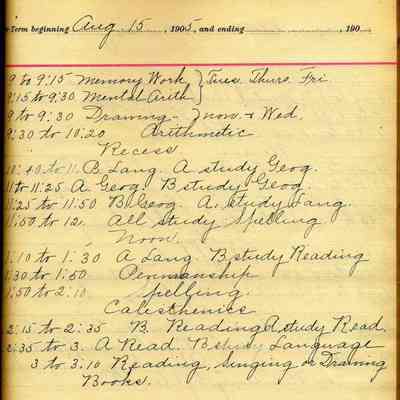 Term beginning Aug. 15, 1905, and ending , 190
9 to 9:15 Memory Work } Tues. Thurs. Fri
9:15 to 9:30 Mental Arith }
9 to 9:30 Drawing - } mon. & Wed.
9:30 to 10:20 Arithmetic
Recess
10:40 to 11. B Lang. A study Geog.
11 to 11:25 A Geog. B study Geog.
11:25 to 11:50 B Geog. A study Lang.
11:50 to 12. All study Spelling
Noon.
1:10 to 1:30 A Lang. B study Reading
1:30 to 1:50 Penmanship
1:50 to 2:10 Spelling.
Calisthenics
2:15 to 2:35 B. Reading A study Read.
2:35 to 3. A Read. B study Language
3 to 3:10 Reading, Singing or Drawing
Books.